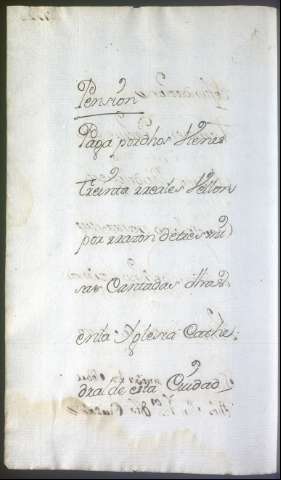 Pension
Paga por dhos
Treinta rreales Vellon
por rrazon de tres mi
sas Cantadas
en la Yglesia Cathe;
dra de esta Ciudad